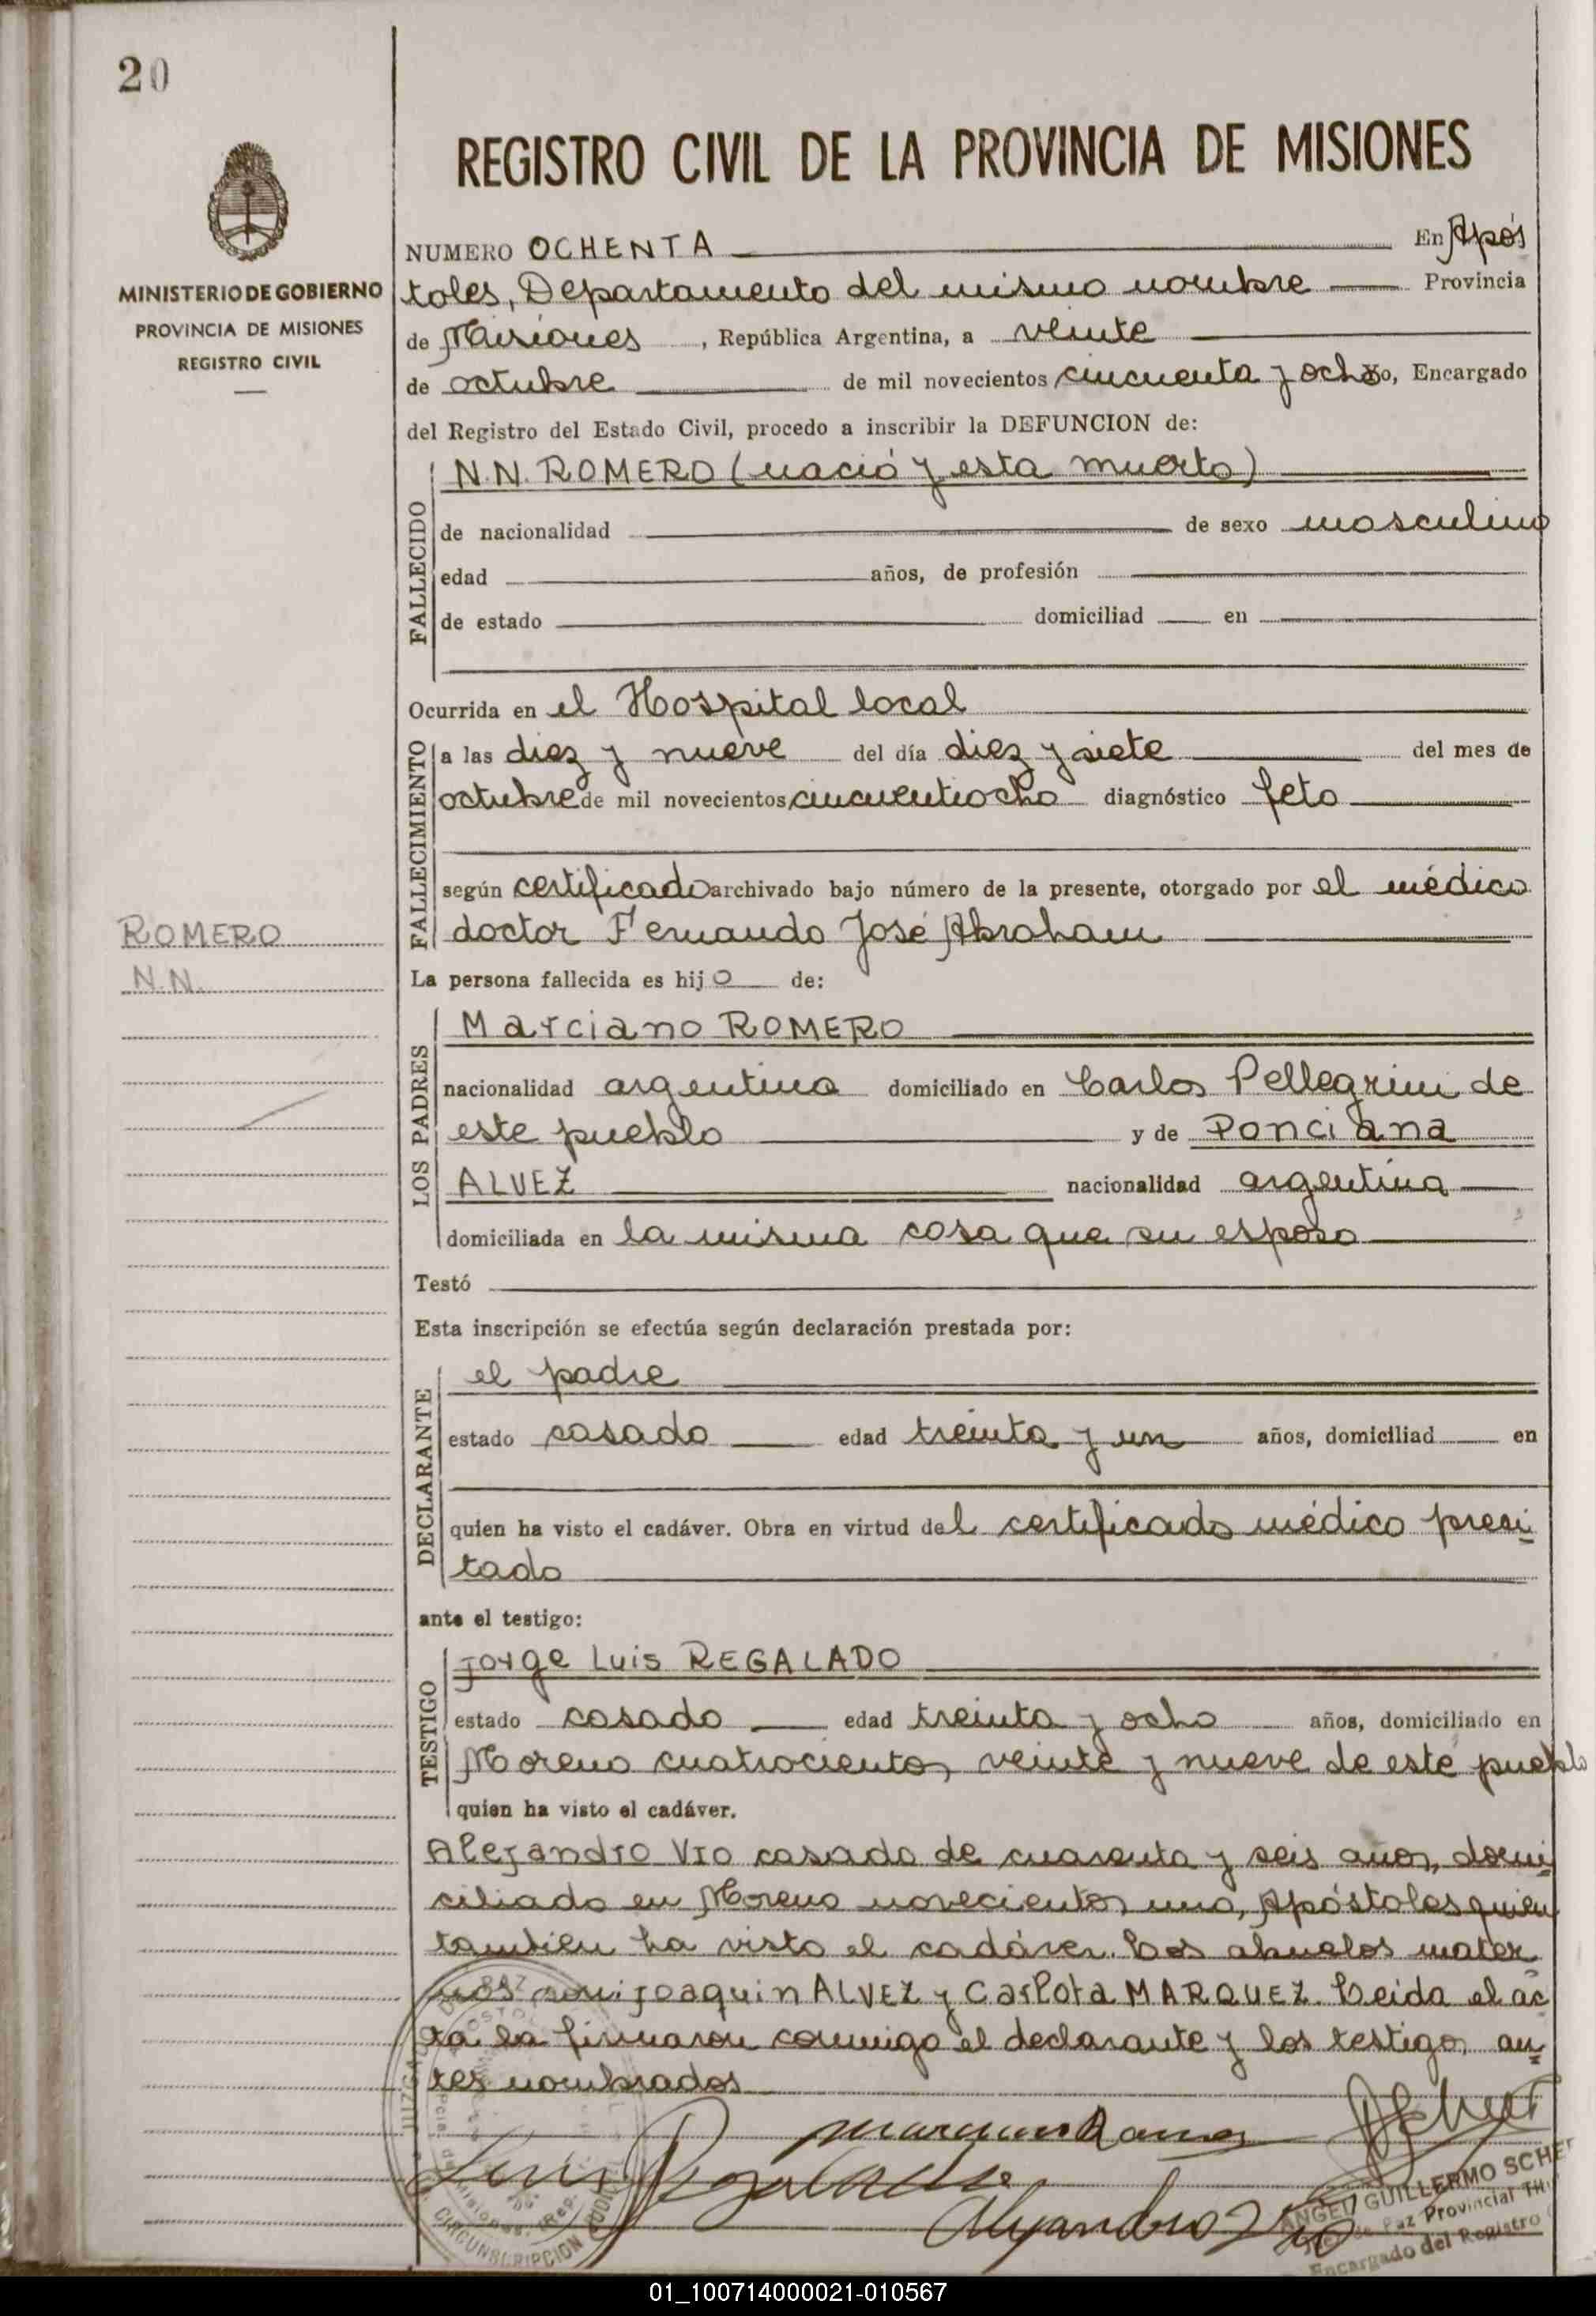 20
REGISTRO CIVIL DE LA PROVINCIA DE MISIONES
MINISTERIO DE GOBIERNO
PROVINCIA DE MISIONES
REGISTRO CIVIL
NUMERO OCHENTA En Após
toles, Departamento del mismo nombre Provincia
de Misiones, República Argentina, a veinte
de octubre de mil novecientos cincuenta y ocho yo, Encargado
del Registro del Estado Civil, procedo a inscribir la DEFUNCION de:
FALLECIDO
N.N. ROMERO (nació y esta muerto)
de nacionalidad de sexo masculino
edad años, de profesión
de estado domiciliad en
Ocurrida en el Hospital local
FALLECIMIENTO
a las diez y nueve del día diez y siete del mes de
octubre de mil novecientos cincuentiocho diagnóstico feto
según certificado archivado bajo número de la presente, otorgado por el médico
doctor Fernando José Abraham
ROMERO
N.N.
La persona fallecida es hijo de:
LOS PADRES
Marciano ROMERO
nacionalidad argentina domiciliado en Carlos Pellegrini de
este pueblo y de Ponciana
ALVEZ nacionalidad argentina
domiciliada en la misma casa que su esposo
Testó
Esta inscripción se efectúa según declaración prestada por:
DECLARANTE
el padre
estado casado edad treinta y un años, domiciliad en
quien ha visto el cadáver. Obra en virtud del certificado médico preci
tado
ante el testigo:
TESTIGO
Jorge Luis REGALADO
estado casado edad treinta y ocho años, domiciliado en
Moreno cuatrocientos veinte y nueve de este pueblo
quien ha visto el cadáver.
Alejandro VIO casado de cuarenta y seis años, domi
ciliado en Moreno novecientos uno, Apóstoles quien
tambien ha visto el cadáver. Los abuelos mater
nos son: Joaquin ALVEZ y Carlota MARQUEZ. Leida el ac
ta la firmaron conmigo el declarante y los testigos an
tes nombrados
Luis Regalado
Alejandro Vio
ANGEL GUILLERMO SCHE
Juez de Paz Provincial Tit
Encargado del Registro
JUZGADO DE PAZ
CIRCUNSCRIPCION
01_100714000021-010567